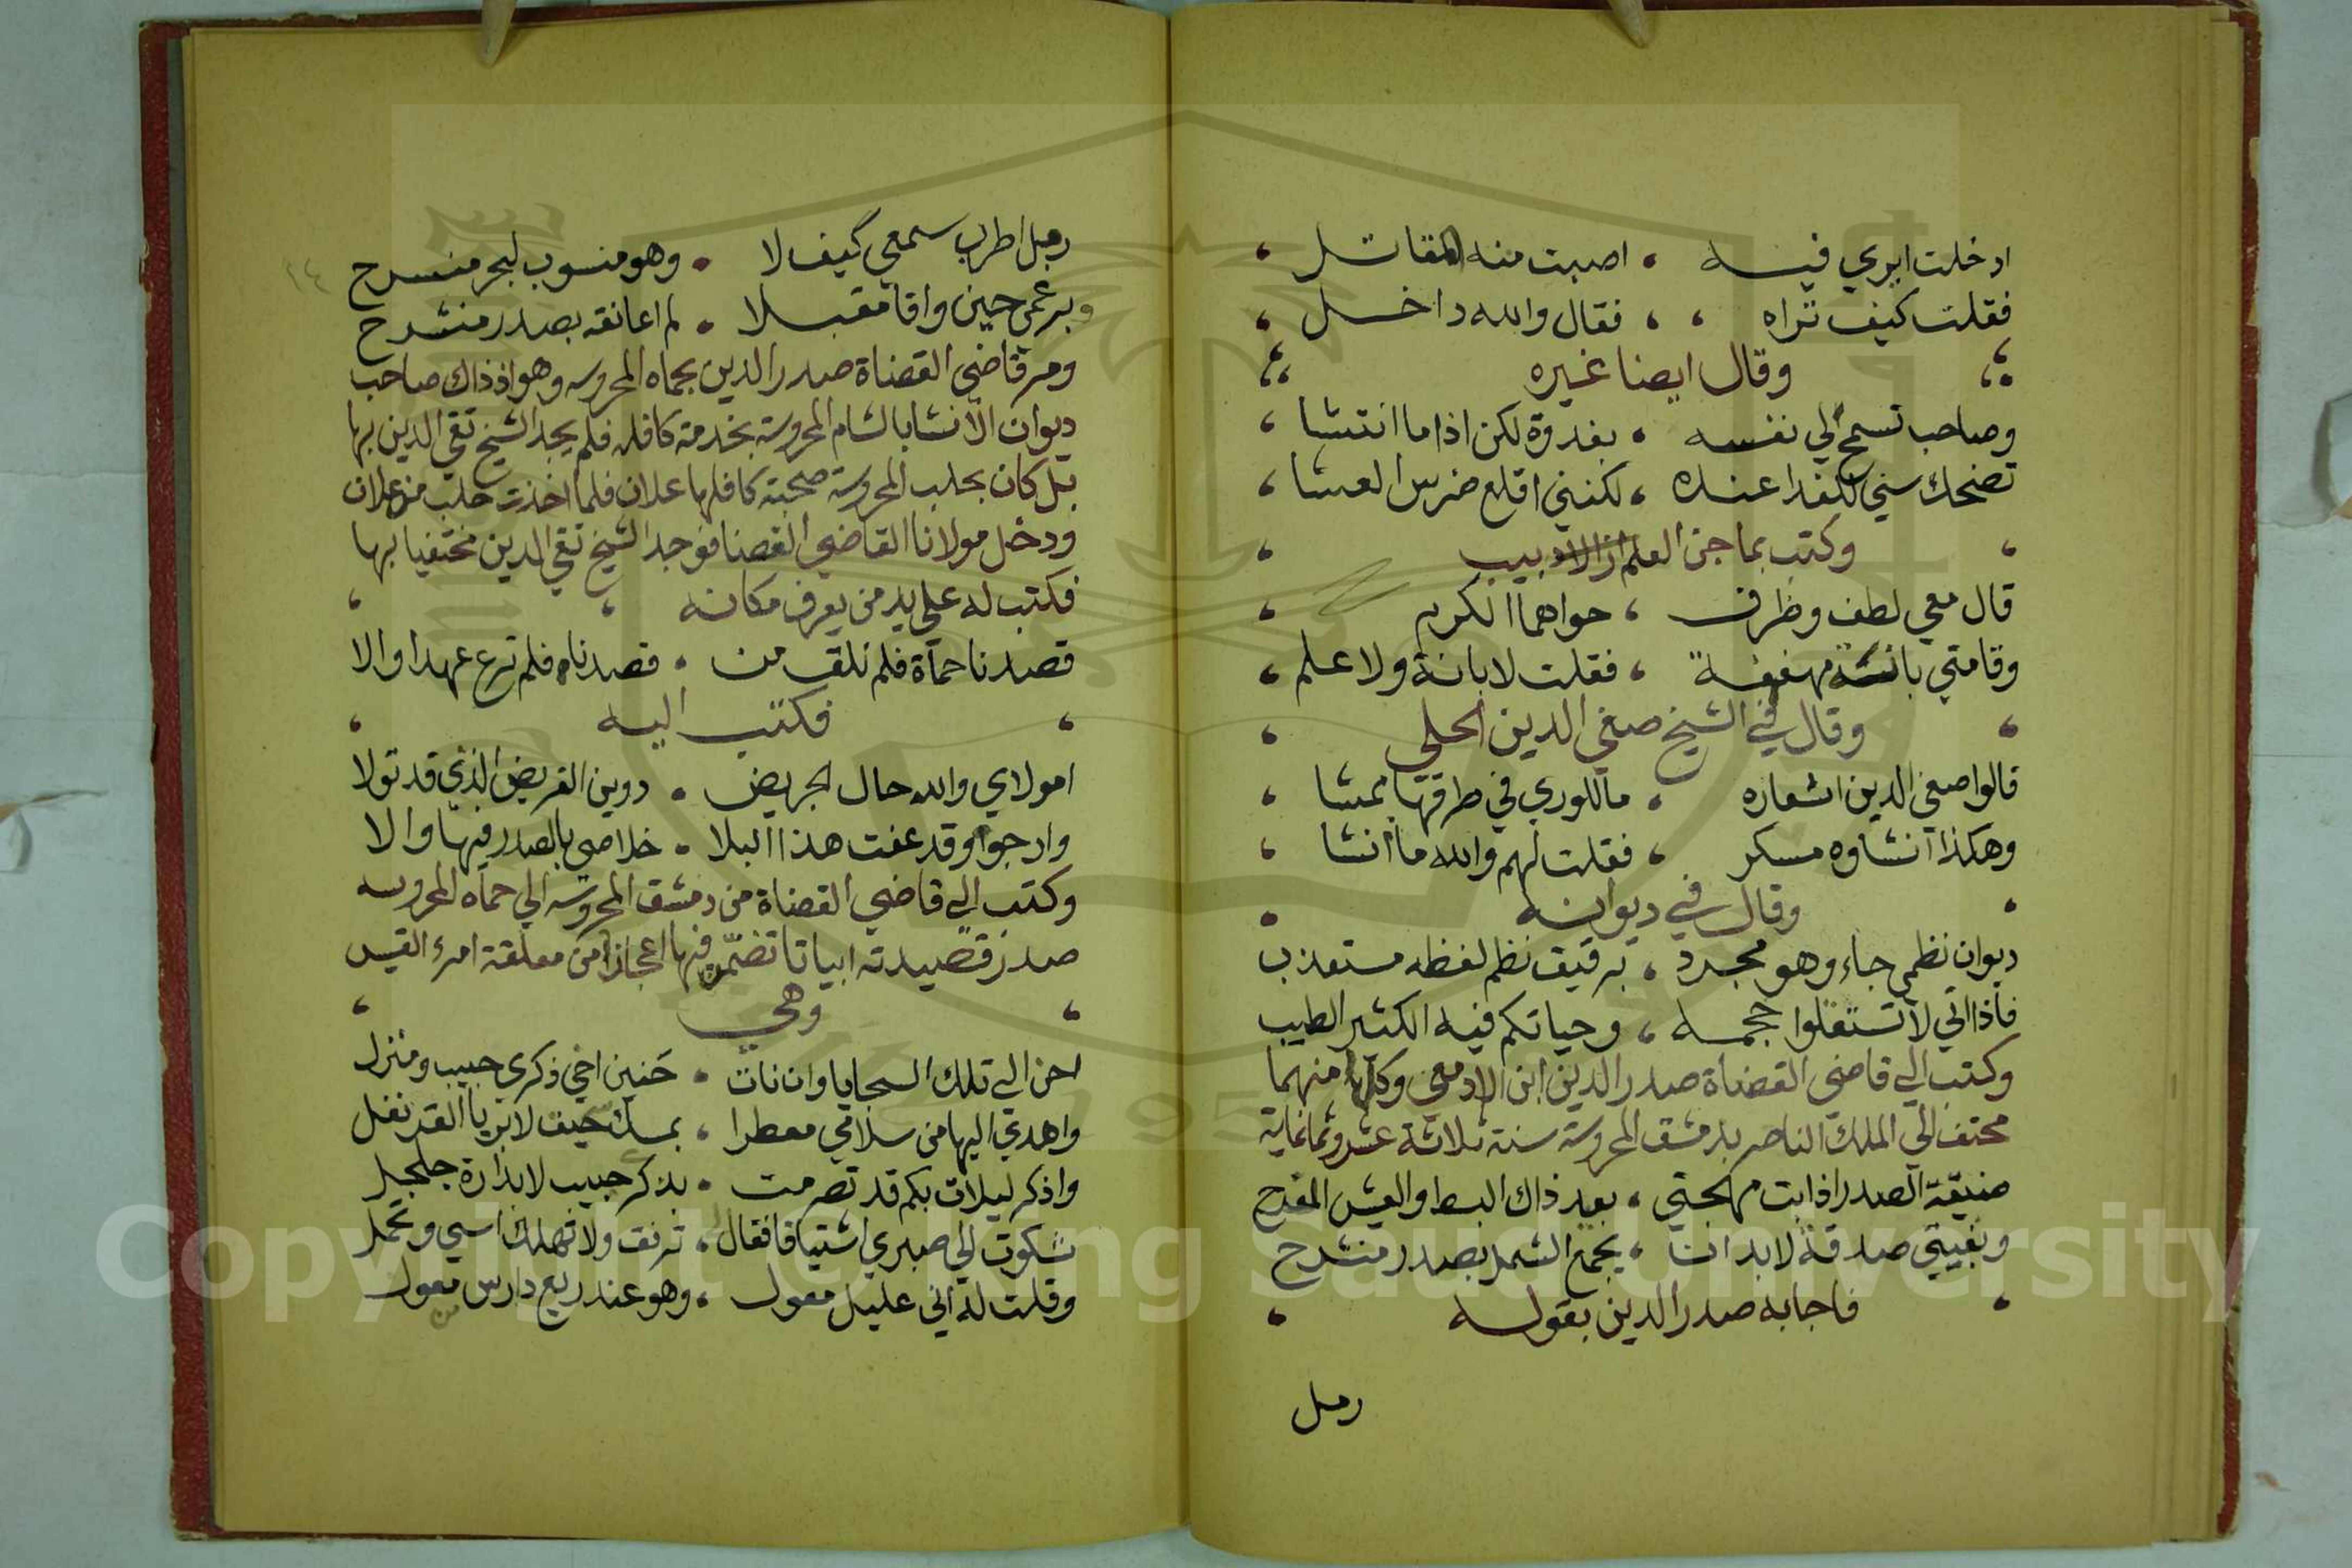 ادخلت ايري فيه ، اصبت منه المقاتل ،
فقلت كيف تراه ، ، فقال والله داخل ،
وقال ايضا غيره
وصاحب تسمح لي نفسه ، بغدوة لكن اذا ما انتشا ،
تضحك سني للغدا عنده ، لكنني اقلع ضرس العشا ،
وكتب بماجن العلم الاديب
قال معي لطف وظرف ، حواهما الكرم
وقامتي بانة مهفهفة ، فقلت لا بانة ولا علم ،
وقال في الشيخ صفي الدين الحلي
قالوا صفي الدين اشعاره ، ما للوري في طرقتها ممشا ،
وهكذا انشاوه مسكر ، فقلت لهم والله ما انشا ،
وقال في ديوانه
ديوان نظمي جاء وهو مجرد ، برقيق نظم لفظه مستعذب
فاذا اتي لا تستقلوا حجمه ، وحياتكم فيه الكثير الطيب
وكتب الي قاضي القضاة صدر الدين ابن الادمي وكلا منهما
مختف الي الملك الناصر بدمشق المحروسة سنة ثلاثة عشر وثمانماية
ضيقة الصدر اذابت مهجتي ، بعد ذاك البسط والعيش المفدح
وبغيتي صدقة لابد ان ، يجمع الشمل بصدر منشرح
فاجابه صدر الدين بقوله
رمل
١٤
رمل اطرب سمعي كيف لا ، وهو منسوب لبحر منسرح
وبرغمي حين وافا مقبلا ، لم اعانقه بصدر منشرح
ومر قاضي القضاة صدر الدين بحماه المحروسه وهو اذ ذاك صاحب
ديوان الانشا بالشام المحروسة بخدمة كافله فلم يجد الشيخ تقي الدين بها
بل كان بحلب المحروسة صحبة كافلها علان فلما اخذت حلب من علان
ودخل مولانا القاضي القضا فوجد الشيخ تقي الدين مختفيا بها
فكتب له علي يد من يعرف مكانه
قصدنا حماة فلم نلق من ، قصدناه فلم ترع عهدا والا
فكتب اليه
امولاي والله حال الجريض ، دوين القريض الذي قد تولا
وارجوا وقد عفت هذا البلا ، خلاصي بالصدر فيها والا
وكتب الي قاضي القضاة من دمشق المحروسه الي حماه المحروسه
صدر قصيدته ابياتا تضمن فيها اعجازا من معلقة امرء القيس
وهي
احن الي تلك السجايا وان نات ، حنين اخي ذكري حبيب ومنزل
واهدي اليها من سلامي معطرا ، بمسك سحيف لا بريا القرنفل
واذكر ليلات بكم قد تصرمت ، بذكر حبيب لا بدارة جلجل
شكوت الي صبري اشتياقا فقال لي ، ترفق ولا تهلك اسي وتحمل
وقلت له اني عليل معول ، وهو عند ربع دارس من معول